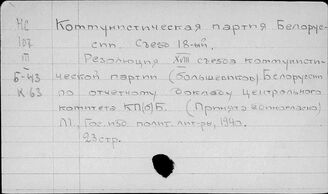 НС
107
III
Б-43
К 63
Коммунистическая партия Белорус-
сии. Съезд 18-ый.
Резолюция XVIII съезда коммунисти-
ческой партии (большевиков) Белоруссии
по отчетному докладу Центрального
комитета КП(б)Б. (Принята единогласно)
М., Гос. изд. полит. лит-ры, 1940.
23 стр.